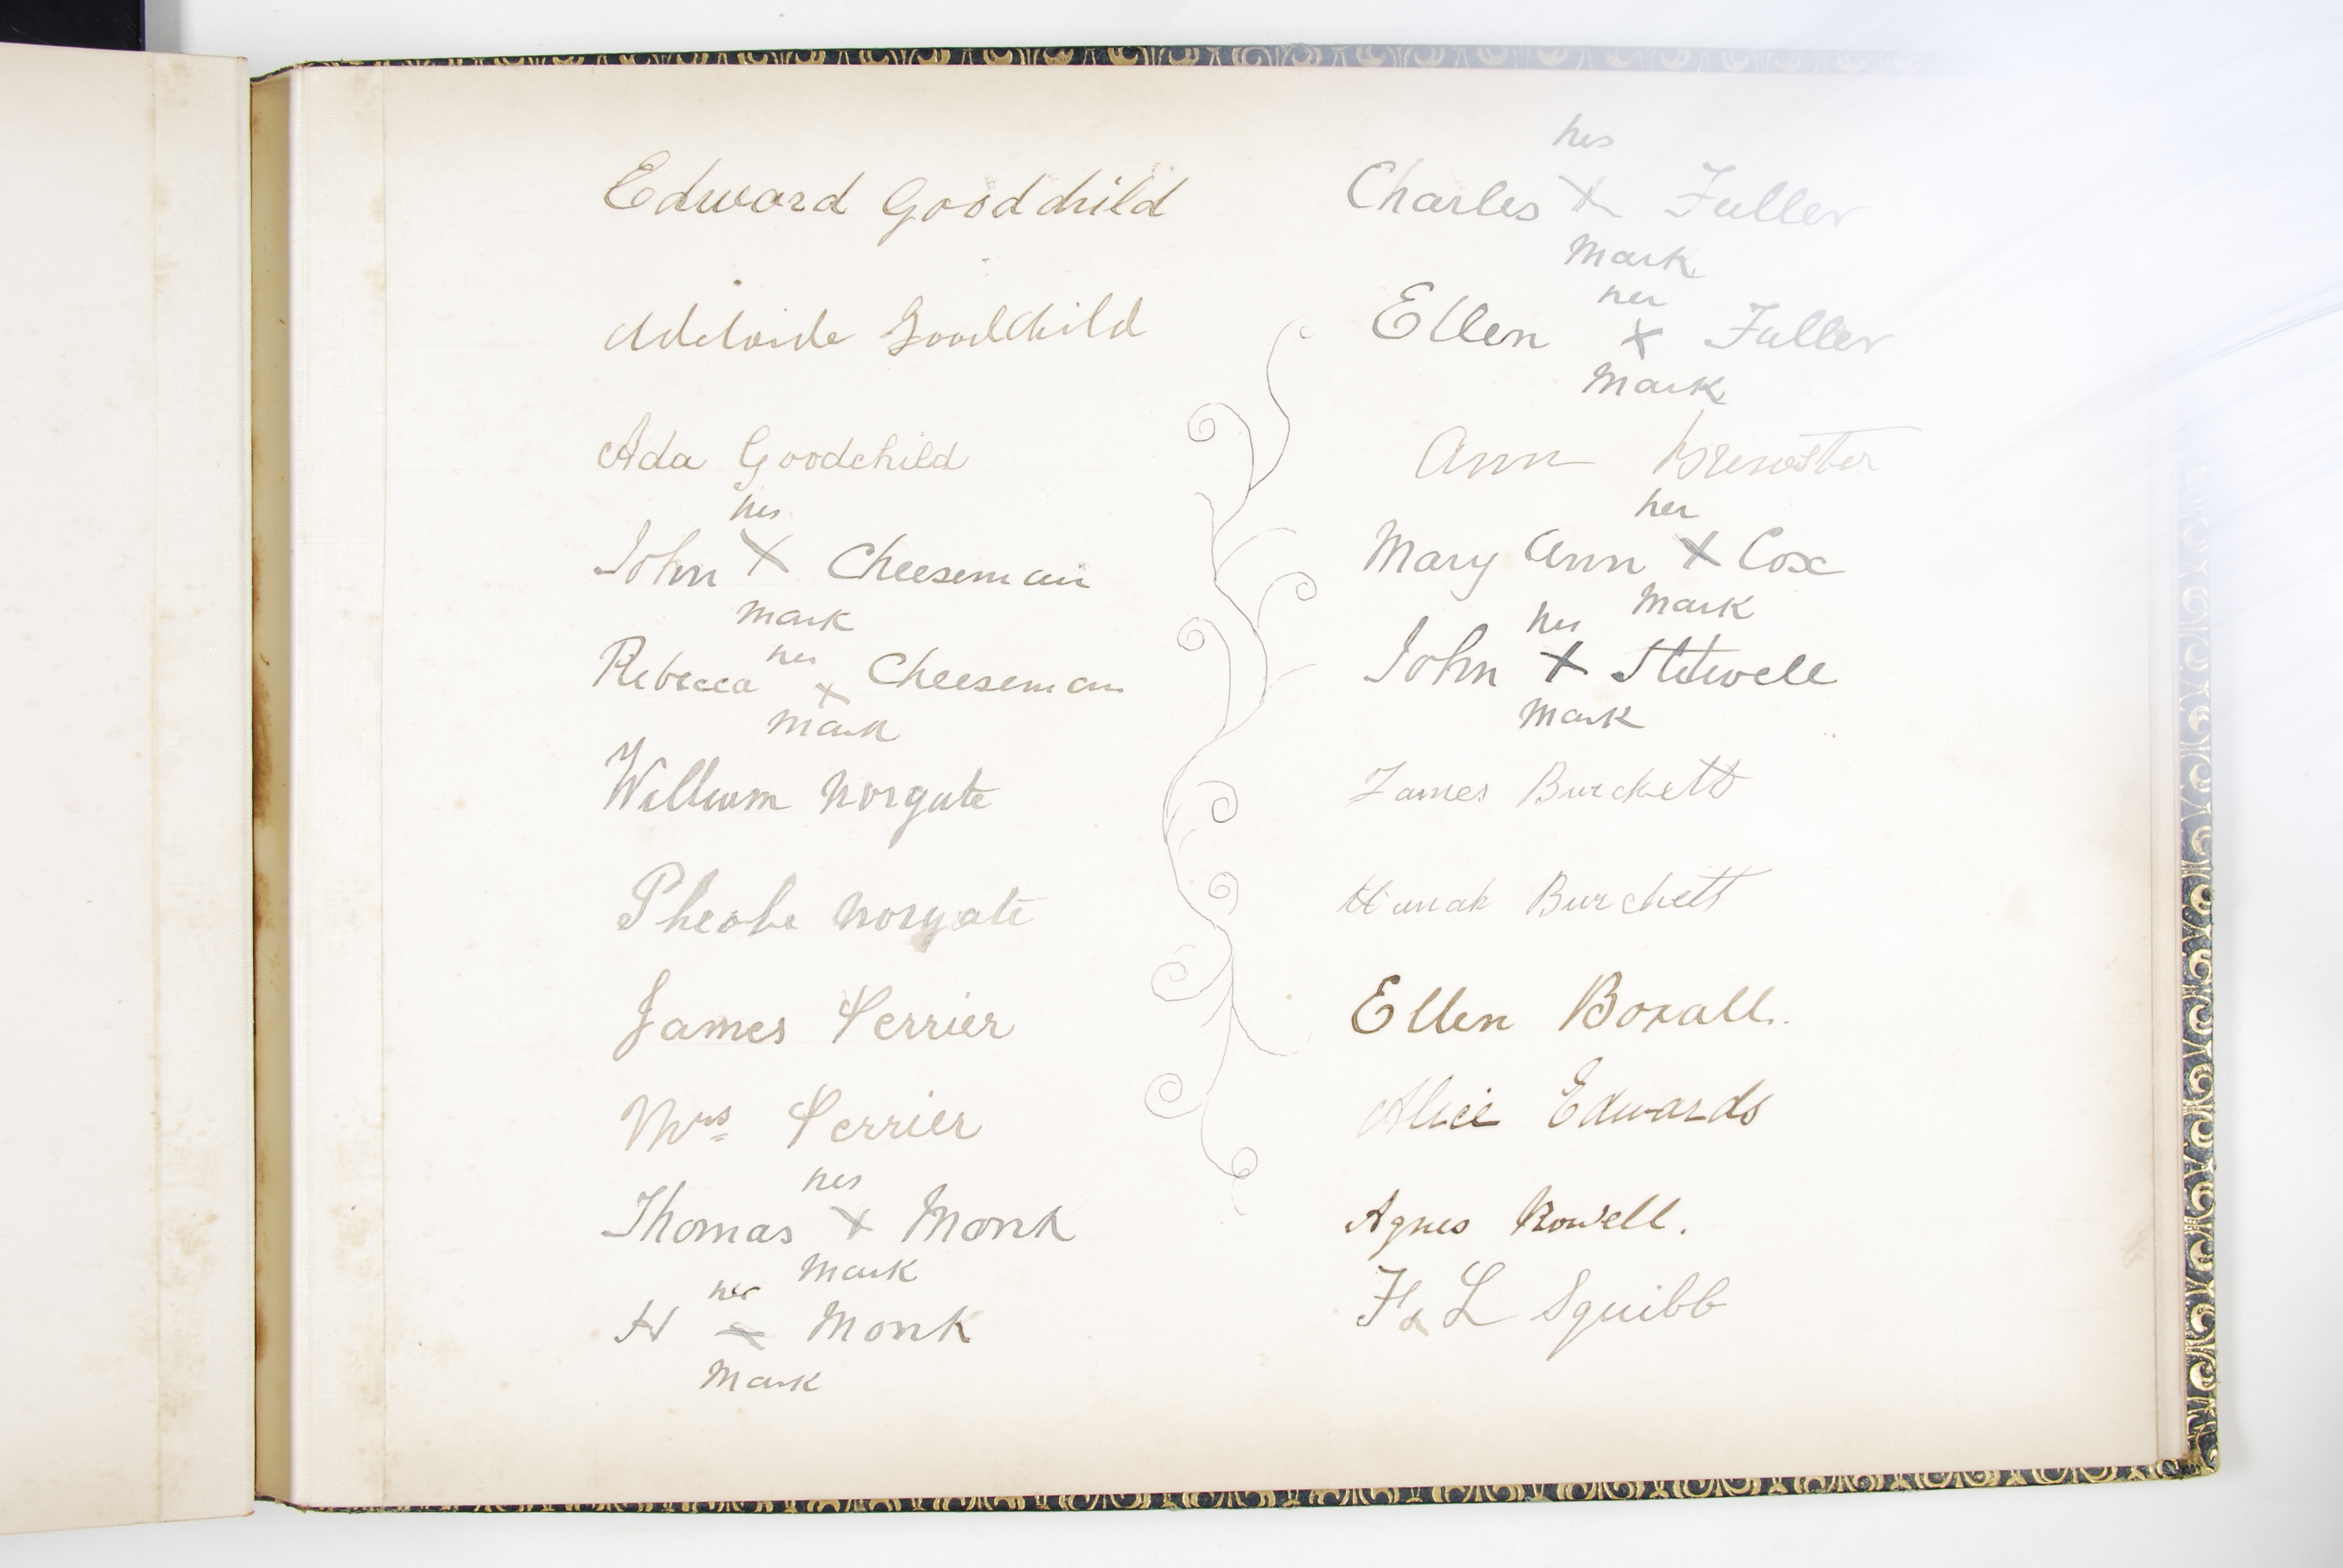 Edward Goodchild
Adelaide Goodchild
Ada Goodchild
his
John X Cheeseman
Mark
her
Rebecca X Cheeseman
Mark
William Norgate
Pheobe Norgate
James Perrier
Mrs Perrier
his
Thomas X Monk
Mark
her
H X Monk
Mark
his
Charles X Fuller
Mark
her
Ellen X Fuller
Mark
Ann Brewster
her
Mary Ann X Cox
Mark
his
John X Stitwell
Mark
James Burchett
Hanah Burchett
Ellen Boxall.
Alice Edwards
Agnes Rowell.
F & L Squibb